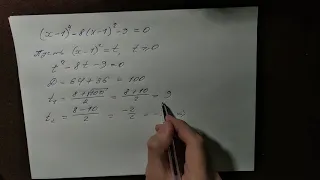 (x-1)⁴-8(x-1)²-9=0
Пусть (x-1)²=t, t≥0
t²-8t-9=0
D=64+36=100
t₁=(8+√100)/2=(8+10)/2=9
t₂=(8-10)/2=-2/2=-